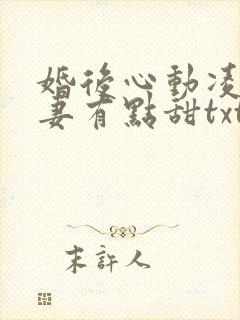 婚後心動凌
妻有點甜txt
末許人